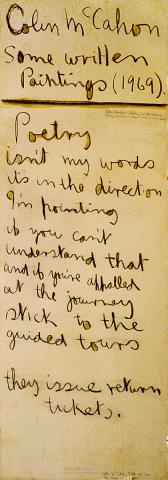 Colin McCahon
Some written
Paintings (1969).
Poetry
isn't my words
it's in the direction
I'm pointing
if you can't
understand that
and if you're appalled
at the journey
stick to the
guided tours
they issue return
tickets.